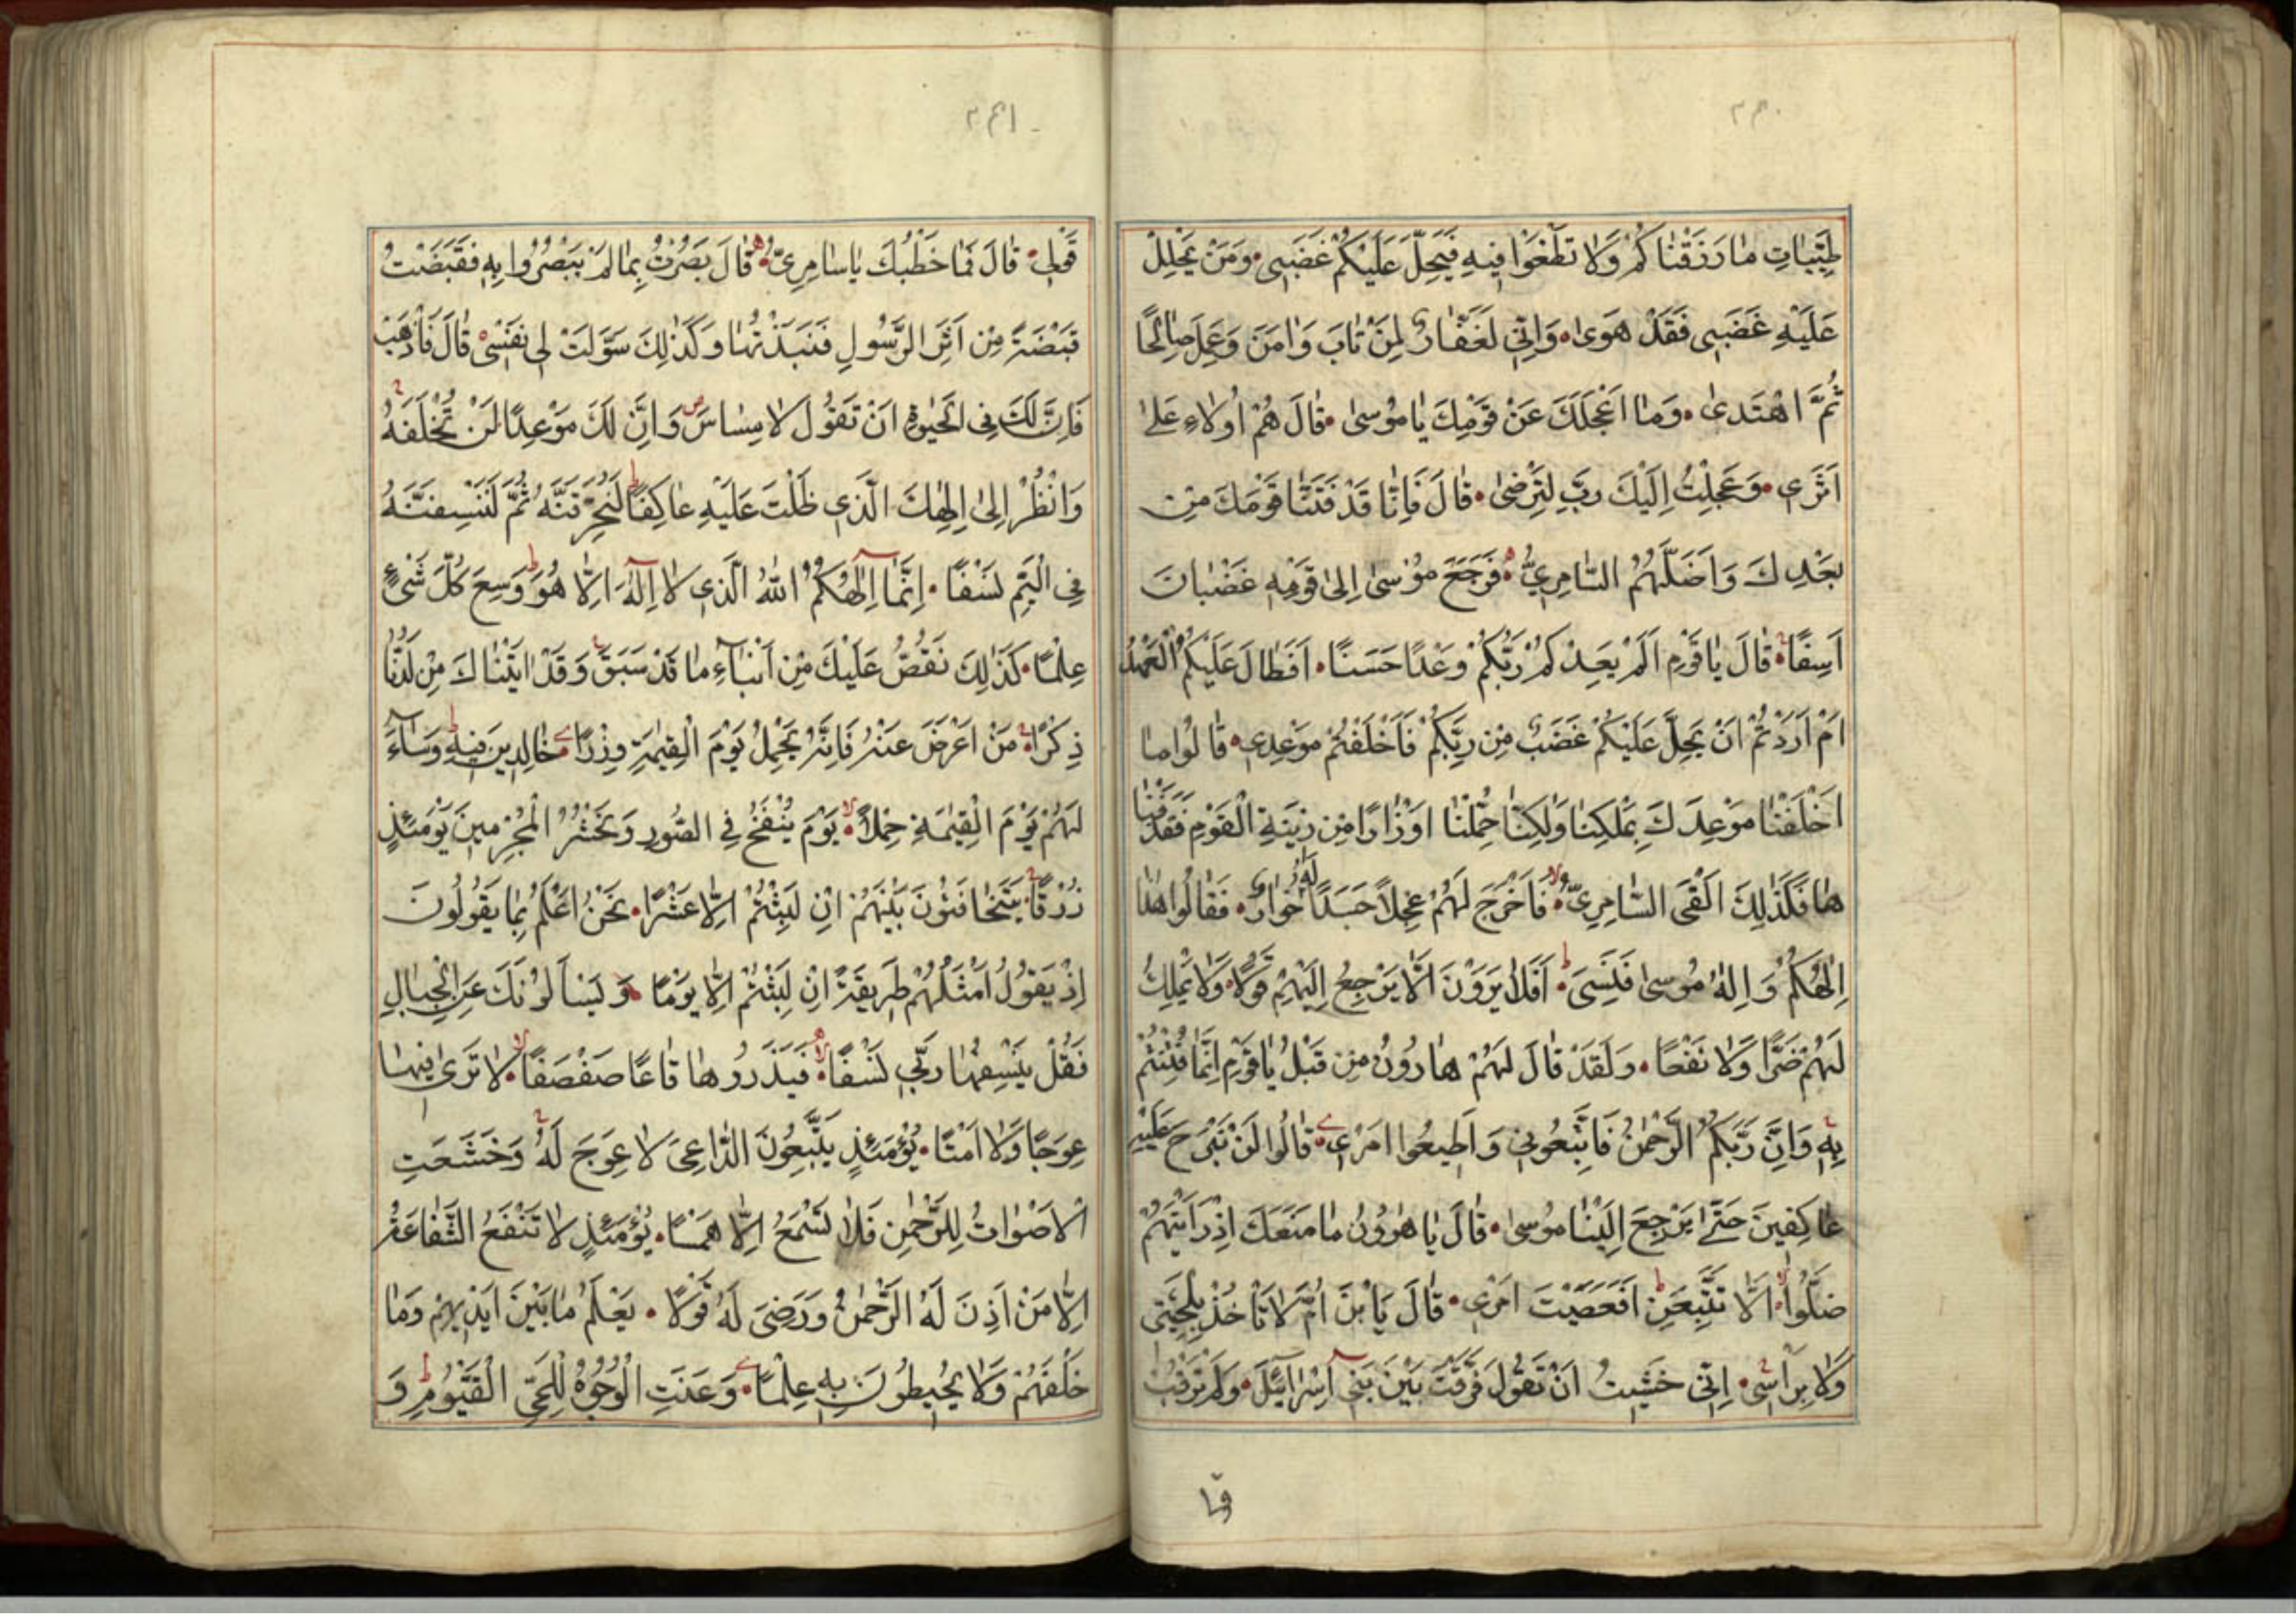 طَيِّبَاتِ مَا رَزَقْنَاكُمْ وَلَا تَطْغَوْا فِيهِ فَيَحِلَّ عَلَيْكُمْ غَضَبِي وَمَنْ يَحْلِلْ
عَلَيْهِ غَضَبِي فَقَدْ هَوَىٰ وَاِنِّي لَغَفَّارٌ لِمَنْ تَابَ وَاٰمَنَ وَعَمِلَ صَالِحًا
ثُمَّ اهْتَدىٰ وَمَا اَعْجَلَكَ عَنْ قَوْمِكَ يَا مُوسىٰ قَالَ هُمْ اُولَاءِ عَلىٰ
اَثَرِي وَعَجِلْتُ اِلَيْكَ رَبِّ لِتَرْضىٰ قَالَ فَاِنَّا قَدْ فَتَنَّا قَوْمَكَ مِنْ
بَعْدِكَ وَاَضَلَّهُمُ السَّامِرِيُّ فَرَجَعَ مُوسىٰ اِلىٰ قَوْمِهِ غَضْبَانَ
اَسِفًا قَالَ يَا قَوْمِ اَلَمْ يَعِدْكُمْ رَبُّكُمْ وَعْدًا حَسَنًا اَفَطَالَ عَلَيْكُمُ الْعَهْدُ
اَمْ اَرَدْتُمْ اَنْ يَحِلَّ عَلَيْكُمْ غَضَبٌ مِنْ رَبِّكُمْ فَاَخْلَفْتُمْ مَوْعِدِي قَالُوا مَا
اَخْلَفْنَا مَوْعِدَكَ بِمَلْكِنَا وَلٰكِنَّا حُمِّلْنَا اَوْزَارًا مِنْ زِينَةِ الْقَوْمِ فَقَذَفْنَا
هَا فَكَذٰلِكَ اَلْقَى السَّامِرِيُّ فَاَخْرَجَ لَهُمْ عِجْلًا جَسَدًا لَهُ خُوَارٌ فَقَالُوا هٰذَا
اِلٰهُكُمْ وَاِلٰهُ مُوسىٰ فَنَسِيَ اَفَلَا يَرَوْنَ اَلَّا يَرْجِعُ اِلَيْهِمْ قَوْلًا وَلَا يَمْلِكُ
لَهُمْ ضَرًّا وَلَا نَفْعًا وَلَقَدْ قَالَ لَهُمْ هَارُونُ مِنْ قَبْلُ يَا قَوْمِ اِنَّمَا فُتِنْتُمْ
بِهِ وَاِنَّ رَبَّكُمُ الرَّحْمٰنُ فَاتَّبِعُونِي وَاَطِيعُوا اَمْرِي قَالُوا لَنْ نَبْرَحَ عَلَيْهِ
عَاكِفِينَ حَتّىٰ يَرْجِعَ اِلَيْنَا مُوسىٰ قَالَ يَا هٰرُونُ مَا مَنَعَكَ اِذْ رَاَيْتَهُمْ
ضَلُّوا اَلَّا تَتَّبِعَنِ اَفَعَصَيْتَ اَمْرِي قَالَ يَا بْنَ اُمَّ لَا تَاْخُذْ بِلِحْيَتِي
وَلَا بِرَاْسِي اِنِّي خَشِيتُ اَنْ تَقُولَ فَرَّقْتَ بَيْنَ بَنِي اِسْرَائِيلَ وَلَمْ تَرْقُبْ
قولی
قَوْلِي قَالَ فَمَا خَطْبُكَ يَا سَامِرِيُّ قَالَ بَصُرْتُ بِمَا لَمْ يَبْصُرُوا بِهِ فَقَبَضْتُ
قَبْضَةً مِنْ اَثَرِ الرَّسُولِ فَنَبَذْتُهَا وَكَذٰلِكَ سَوَّلَتْ لِي نَفْسِي قَالَ فَاذْهَبْ
فَاِنَّ لَكَ فِي الْحَيٰوةِ اَنْ تَقُولَ لَا مِسَاسَ وَاِنَّ لَكَ مَوْعِدًا لَنْ تُخْلَفَهُ
وَانْظُرْ اِلىٰ اِلٰهِكَ الَّذِي ظَلْتَ عَلَيْهِ عَاكِفًا لَنُحَرِّقَنَّهُ ثُمَّ لَنَنْسِفَنَّهُ
فِي الْيَمِّ نَسْفًا اِنَّمَا اِلٰهُكُمُ اللّٰهُ الَّذِي لَا اِلٰهَ اِلَّا هُوَ وَسِعَ كُلَّ شَيْءٍ
عِلْمًا كَذٰلِكَ نَقُصُّ عَلَيْكَ مِنْ اَنْبَاءِ مَا قَدْ سَبَقَ وَقَدْ اٰتَيْنَاكَ مِنْ لَدُنَّا
ذِكْرًا مَنْ اَعْرَضَ عَنْهُ فَاِنَّهُ يَحْمِلُ يَوْمَ الْقِيٰمَةِ وِزْرًا خَالِدِينَ فِيهِ وَسَاءَ
لَهُمْ يَوْمَ الْقِيٰمَةِ حِمْلًا يَوْمَ يُنْفَخُ فِي الصُّورِ وَنَحْشُرُ الْمُجْرِمِينَ يَوْمَئِذٍ
زُرْقًا يَتَخَافَتُونَ بَيْنَهُمْ اِنْ لَبِثْتُمْ اِلَّا عَشْرًا نَحْنُ اَعْلَمُ بِمَا يَقُولُونَ
اِذْ يَقُولُ اَمْثَلُهُمْ طَرِيقَةً اِنْ لَبِثْتُمْ اِلَّا يَوْمًا وَيَسْاَلُونَكَ عَنِ الْجِبَالِ
فَقُلْ يَنْسِفُهَا رَبِّي نَسْفًا فَيَذَرُهَا قَاعًا صَفْصَفًا لَا تَرىٰ فِيهَا
عِوَجًا وَلَا اَمْتًا يَوْمَئِذٍ يَتَّبِعُونَ الدَّاعِيَ لَا عِوَجَ لَهُ وَخَشَعَتِ
الْاَصْوَاتُ لِلرَّحْمٰنِ فَلَا تَسْمَعُ اِلَّا هَمْسًا يَوْمَئِذٍ لَا تَنْفَعُ الشَّفَاعَةُ
اِلَّا مَنْ اَذِنَ لَهُ الرَّحْمٰنُ وَرَضِيَ لَهُ قَوْلًا يَعْلَمُ مَا بَيْنَ اَيْدِيهِمْ وَمَا
خَلْفَهُمْ وَلَا يُحِيطُونَ بِهِ عِلْمًا وَعَنَتِ الْوُجُوهُ لِلْحَيِّ الْقَيُّومِ وَ